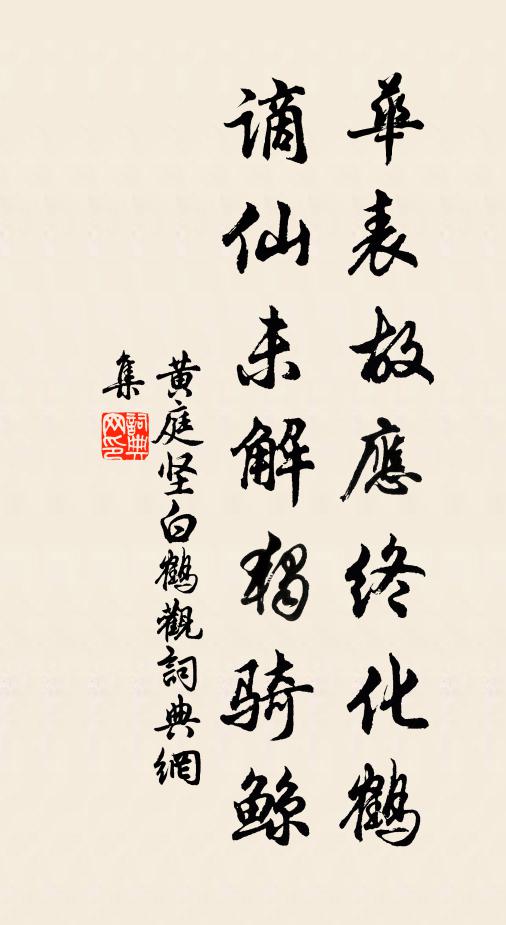 華表故應終化鶴
謫仙未解獨骑鲸
黄庭坚白鶴觀詞典網
集
詞典
网印